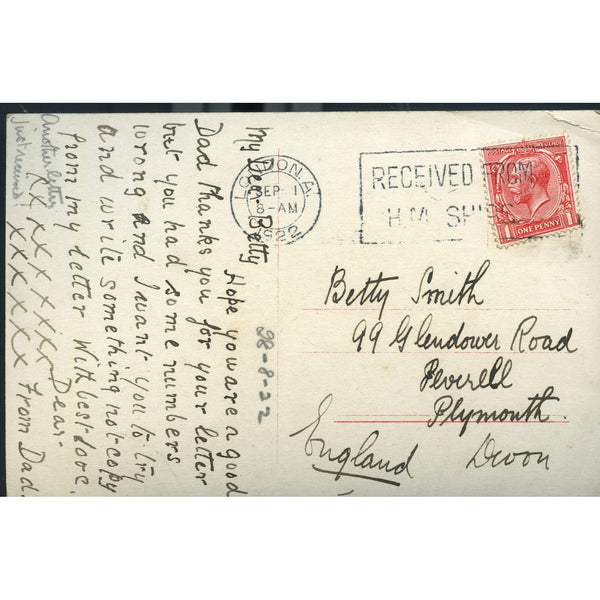 My Dear Betty
Hope you are a good
Dad thanks you for your letter
but you had some numbers
wrong and I want you to try
and write something not copy
from my letter With best love.
Dear
x x x x x x x
x x x x x x From Dad.
Another letter
just received
28-8-22
LONDON A
SEP 1
8-AM
1922
RECEIVED FROM
H.M. SHIPS
POSTAGE REVENUE
1 ONE PENNY 1
Betty Smith
99 Glendower Road
Peverell
Plymouth.
England Devon